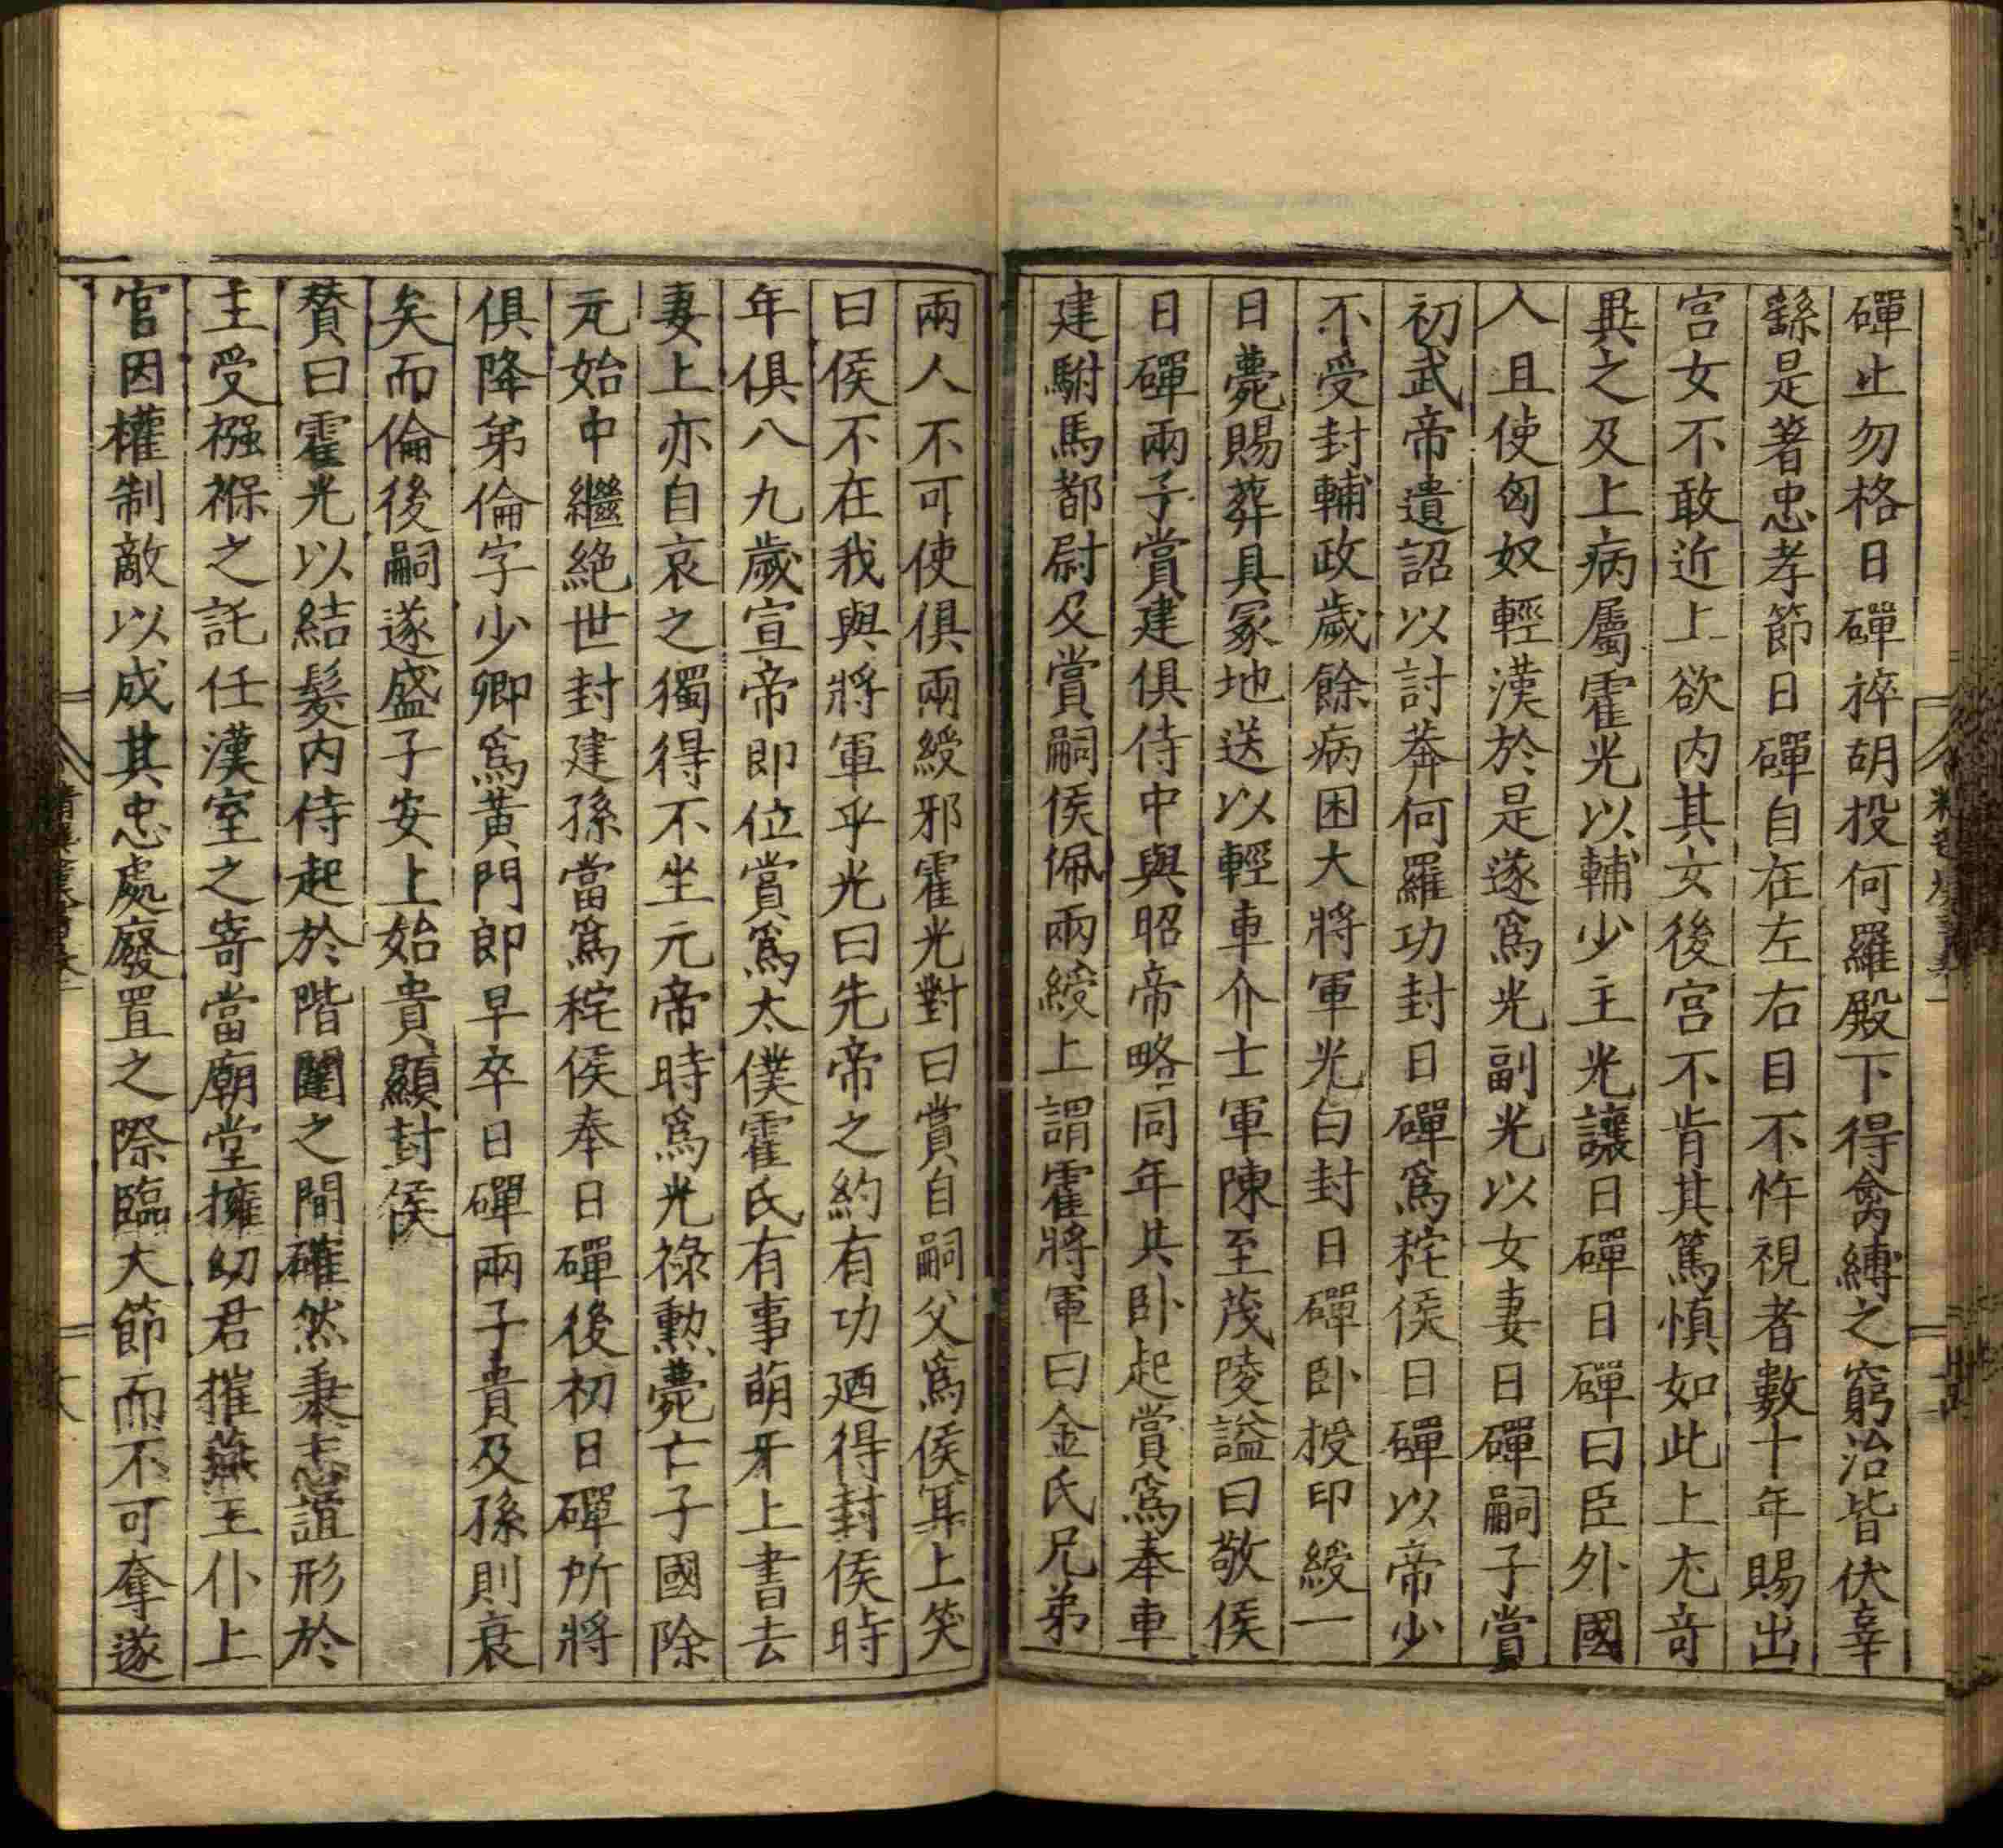 磾止勿格日磾捽胡投何羅殿下得禽縛之窮治皆伏辜
繇是著忠孝節日磾自在左右目不忤視者數十年賜出
宮女不敢近上欲内其女後宮不肯其篤慎如此上尤奇
異之及上病屬霍光以輔少主光讓日磾日磾曰臣外國
人且使匈奴輕漢於是遂爲光副光以女妻日磾嗣子賞
初武帝遺詔以討莽何羅功封日磾爲秺侯日磾以帝少
不受封輔政歲餘病困大將軍光白封日磾卧授印綬一
日薨賜葬具冢地送以輕車介士軍陳至茂陵謚曰敬侯
日磾兩子賞建俱侍中與昭帝略同年共卧起賞爲奉車
建駙馬都尉及賞嗣侯佩兩綬上謂霍將軍曰金氏兄弟
兩人不可使俱兩綬邪霍光對曰賞自嗣父爲侯耳上笑
曰侯不在我與將軍乎光曰先帝之約有功廼得封侯時
年俱八九歲宣帝即位賞爲太僕霍氏有事萌牙上書去
妻上亦自哀之獨得不坐元帝時爲光祿勲薨亡子國除
元始中繼絶世封建孫當爲秺侯奉日磾後初日磾所將
俱降弟倫字少卿爲黃門郎早卒日磾兩子貴及孫則衰
矣而倫後嗣遂盛子安上始貴顯封侯
贊曰霍光以結髮内侍起於階闥之間確然秉志誼形於
主受襁褓之託任漢室之寄當廟堂擁幼君摧燕王仆上
官因權制敵以成其忠處廢置之際臨大節而不可奪遂